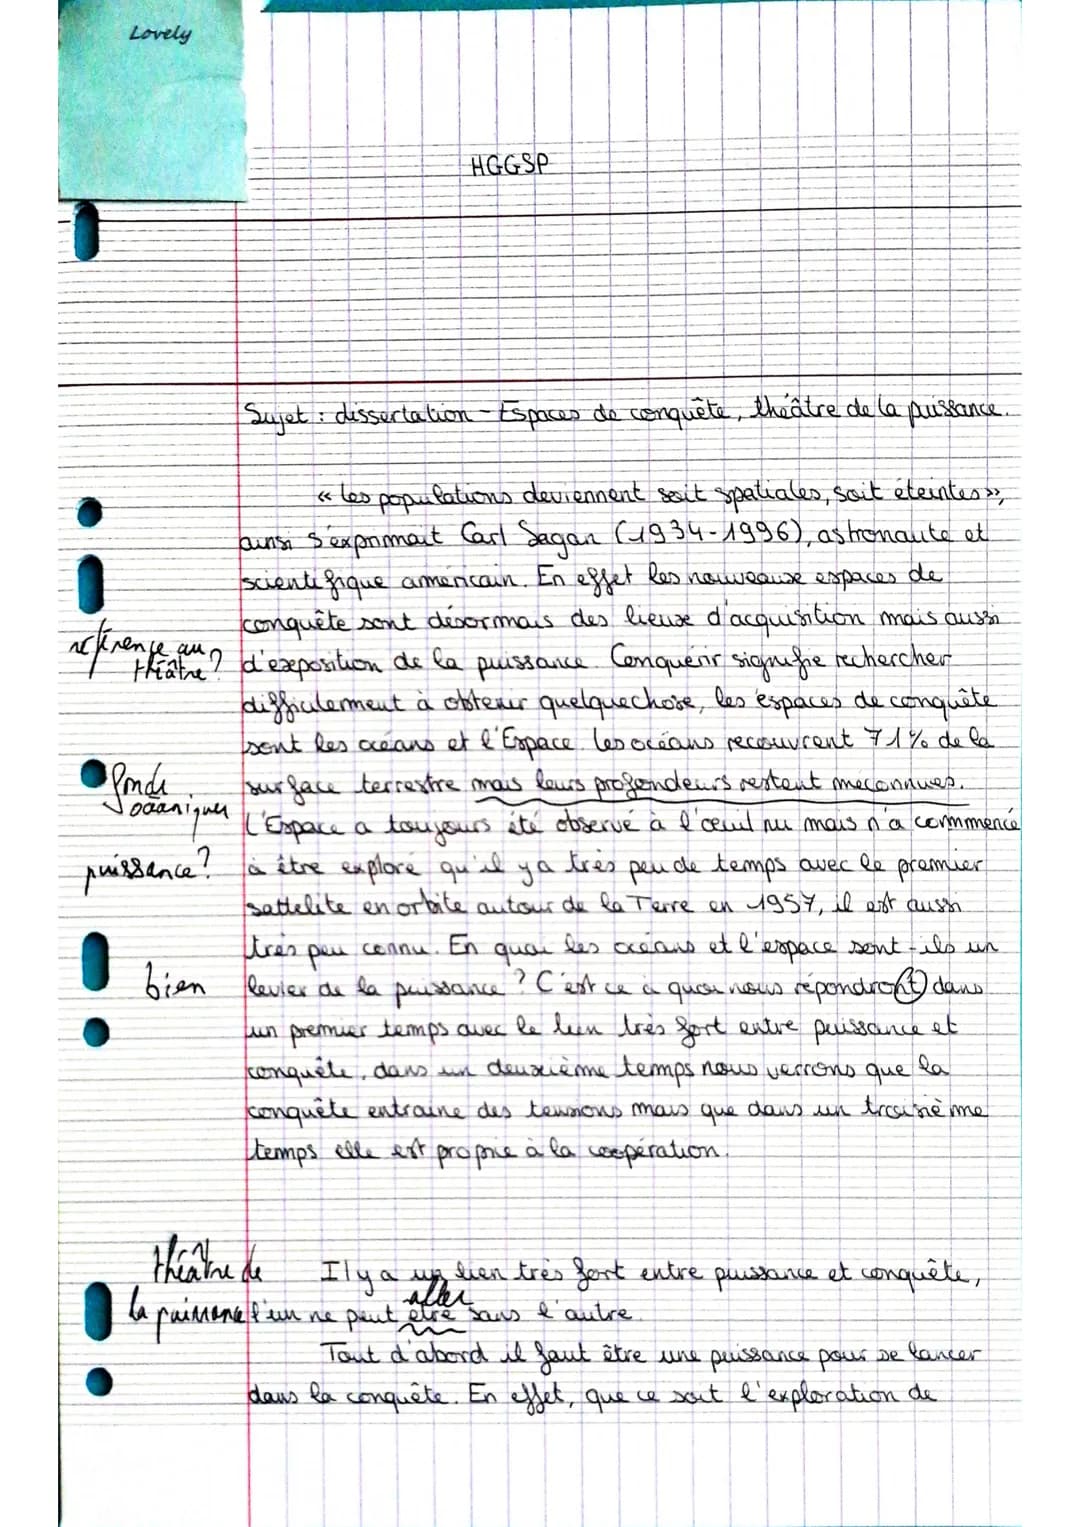 Lovely
HGGSP
Sujet : dissertation - Espaces de conquête, théâtre de la puissance.
« les populations deviennent soit spatiales, soit éteintes »,
ainsi s'exprimait Carl Sagan (1934-1996), astronaute et
scientifique américain. En effet les nouveaux espaces de
conquête sont désormais des lieux d'acquisition mais aussi
référence au théâtre ?
d'exposition de la puissance. Conquérir signifie rechercher
difficilement à obtenir quelquechose, les espaces de conquête
sont les océans et l'Espace. les océans recouvrent 71% de la
fonds océaniques
surface terrestre mais leurs profondeurs restent méconnues.
L'Espace a toujours été observé à l'oeuil nu mais n'a commmencé
puissance ?
à être exploré qu'il y a très peu de temps avec le premier
sattelite en orbite autour de la Terre en 1957, il est aussi
très peu connu. En quoi les océans et l'espace sont-ils un
bien
levier de la puissance ? C'est ce à quoi nous répondront dans
un premier temps avec le lien très fort entre puissance et
conquête, dans un deuxième temps nous verrons que la
conquête entraine des tensions mais que dans un troisième
temps elle est propice à la coopération.
théâtre de la puissance
Il y a un lien très fort entre puissance et conquête,
aller
l'un ne peut être sans l'autre.
Tout d'abord il faut être une puissance pour se lancer
dans la conquête. En effet, que ce soit l'exploration de